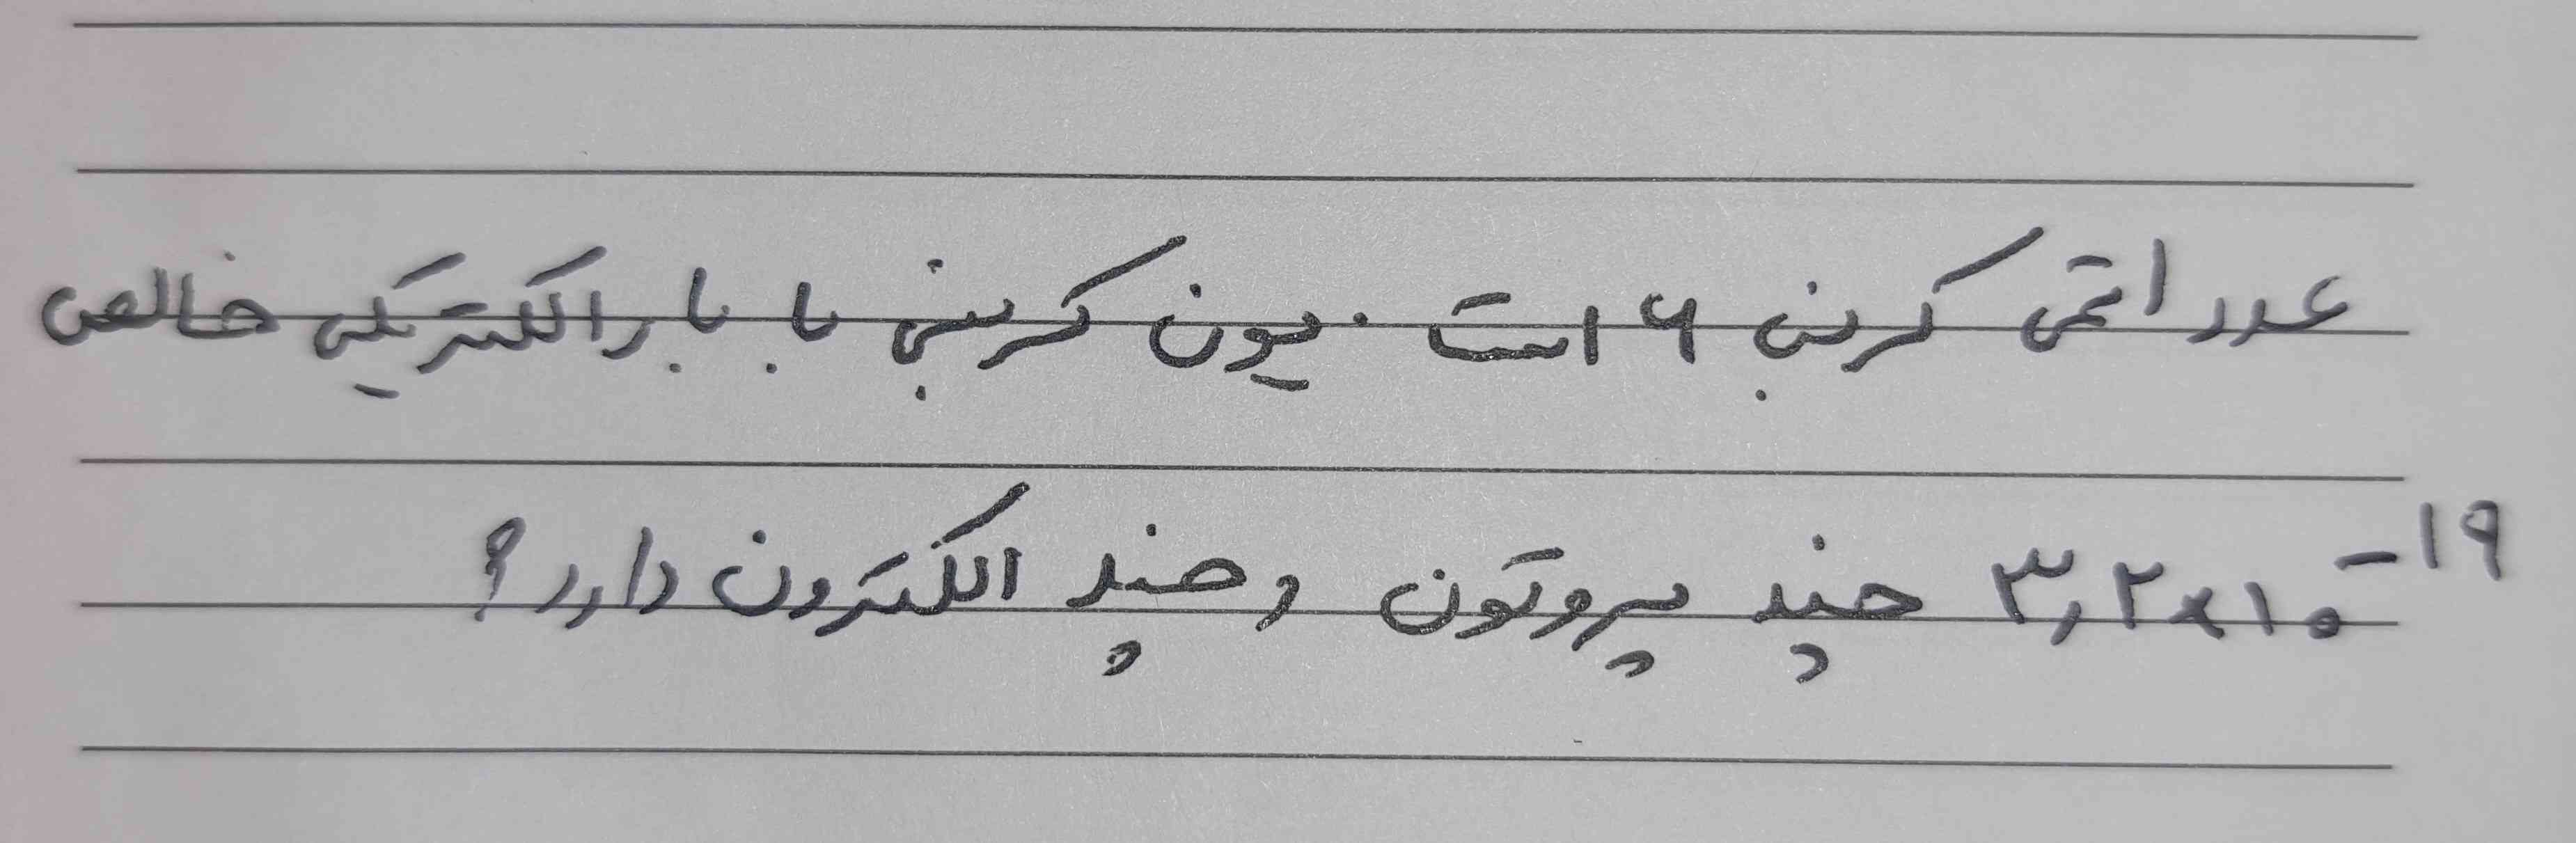 عدد اتمی کربن ۶ است. یون کربنی با بار الکتریکی خالص
۳٫۲×۱۰^-۱۹ چند پروتون و چند الکترون دارد؟